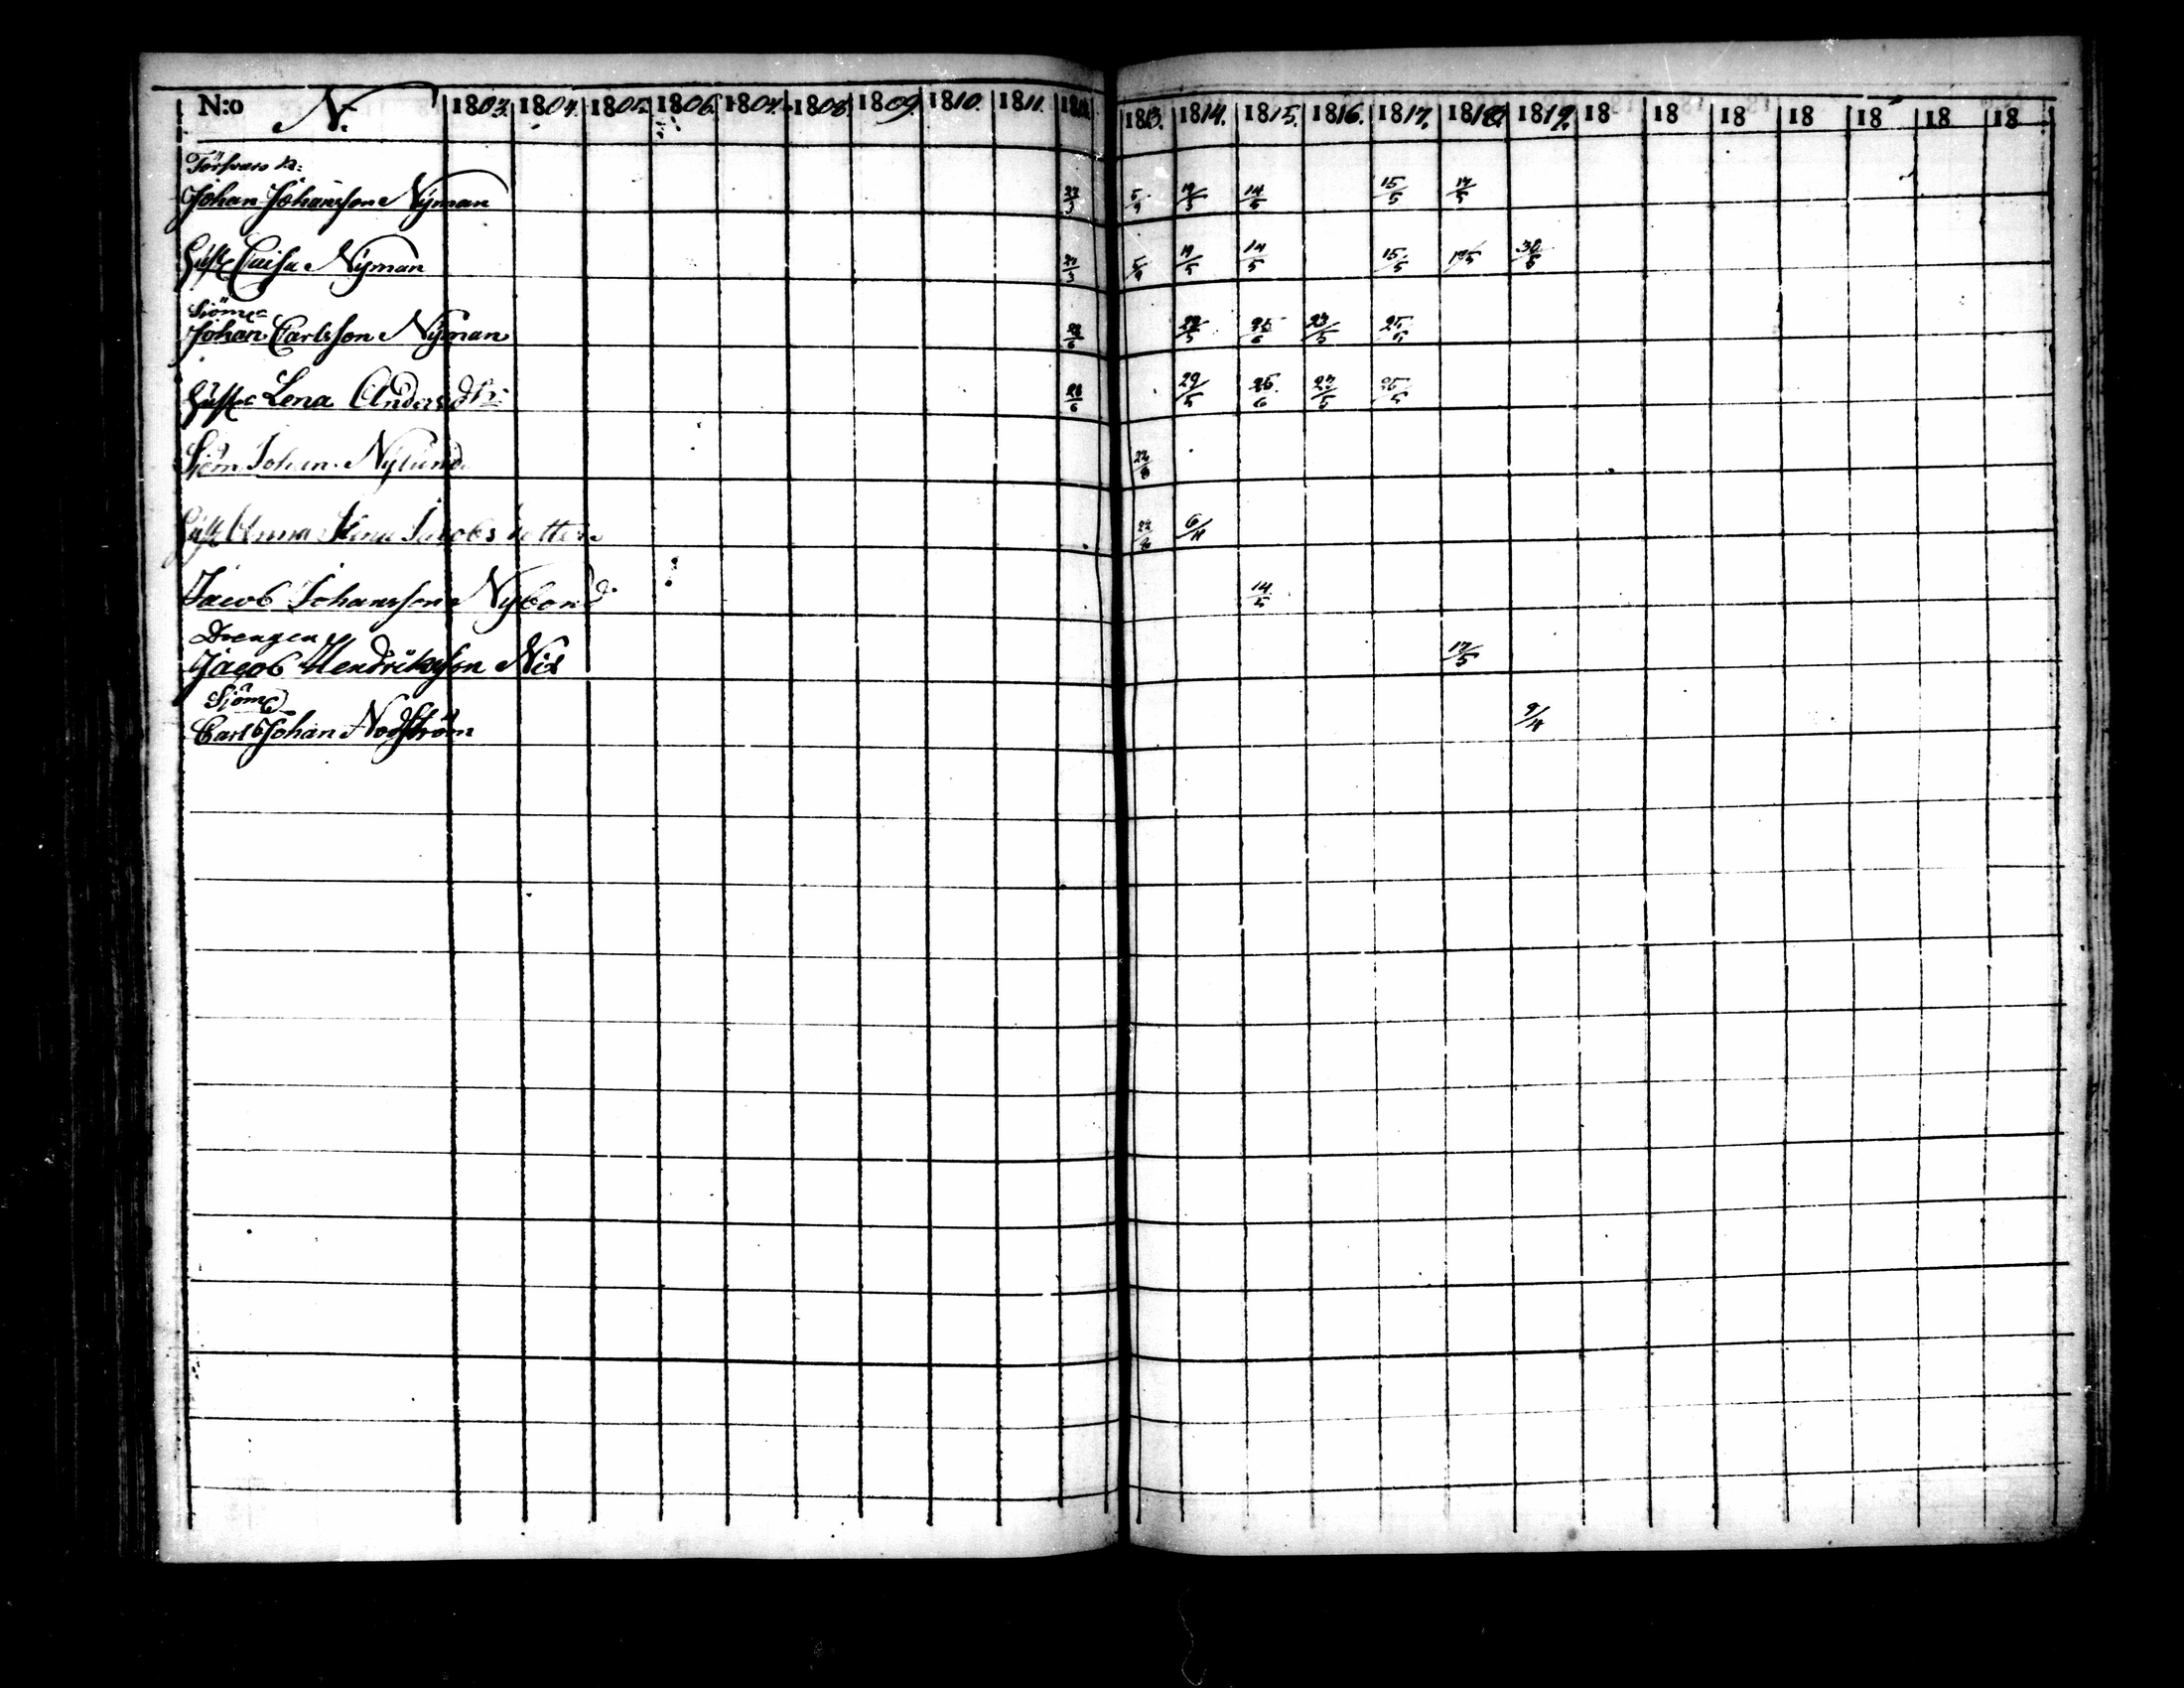 N:o N. 1803. 1804. 1805. 1806. 1807. 1808. 1809. 1810. 1811. 1812. 1813. 1814. 1815. 1816. 1817. 1818. 1819. 18 18 18 18 18 18 18
Johan Johansson Nyman 5/4 14/5 15/5 17/5
Hust Caisa Nyman 5/4 14/5 15/5 17/5 30/5
Sjöm
Johan Carlsson Nyman 23/5
Hust Lena Andersdtr 29/5 26/6 23/5 25/5
Sjöm Johan Nylund
Hust Anna Jacobsdotter 6/4
Jacob Johansson Nybond 14/5
Drengen
Jacob Hendriksson Nix 17/5
Sjöm
Carl Johan Nordström 9/4